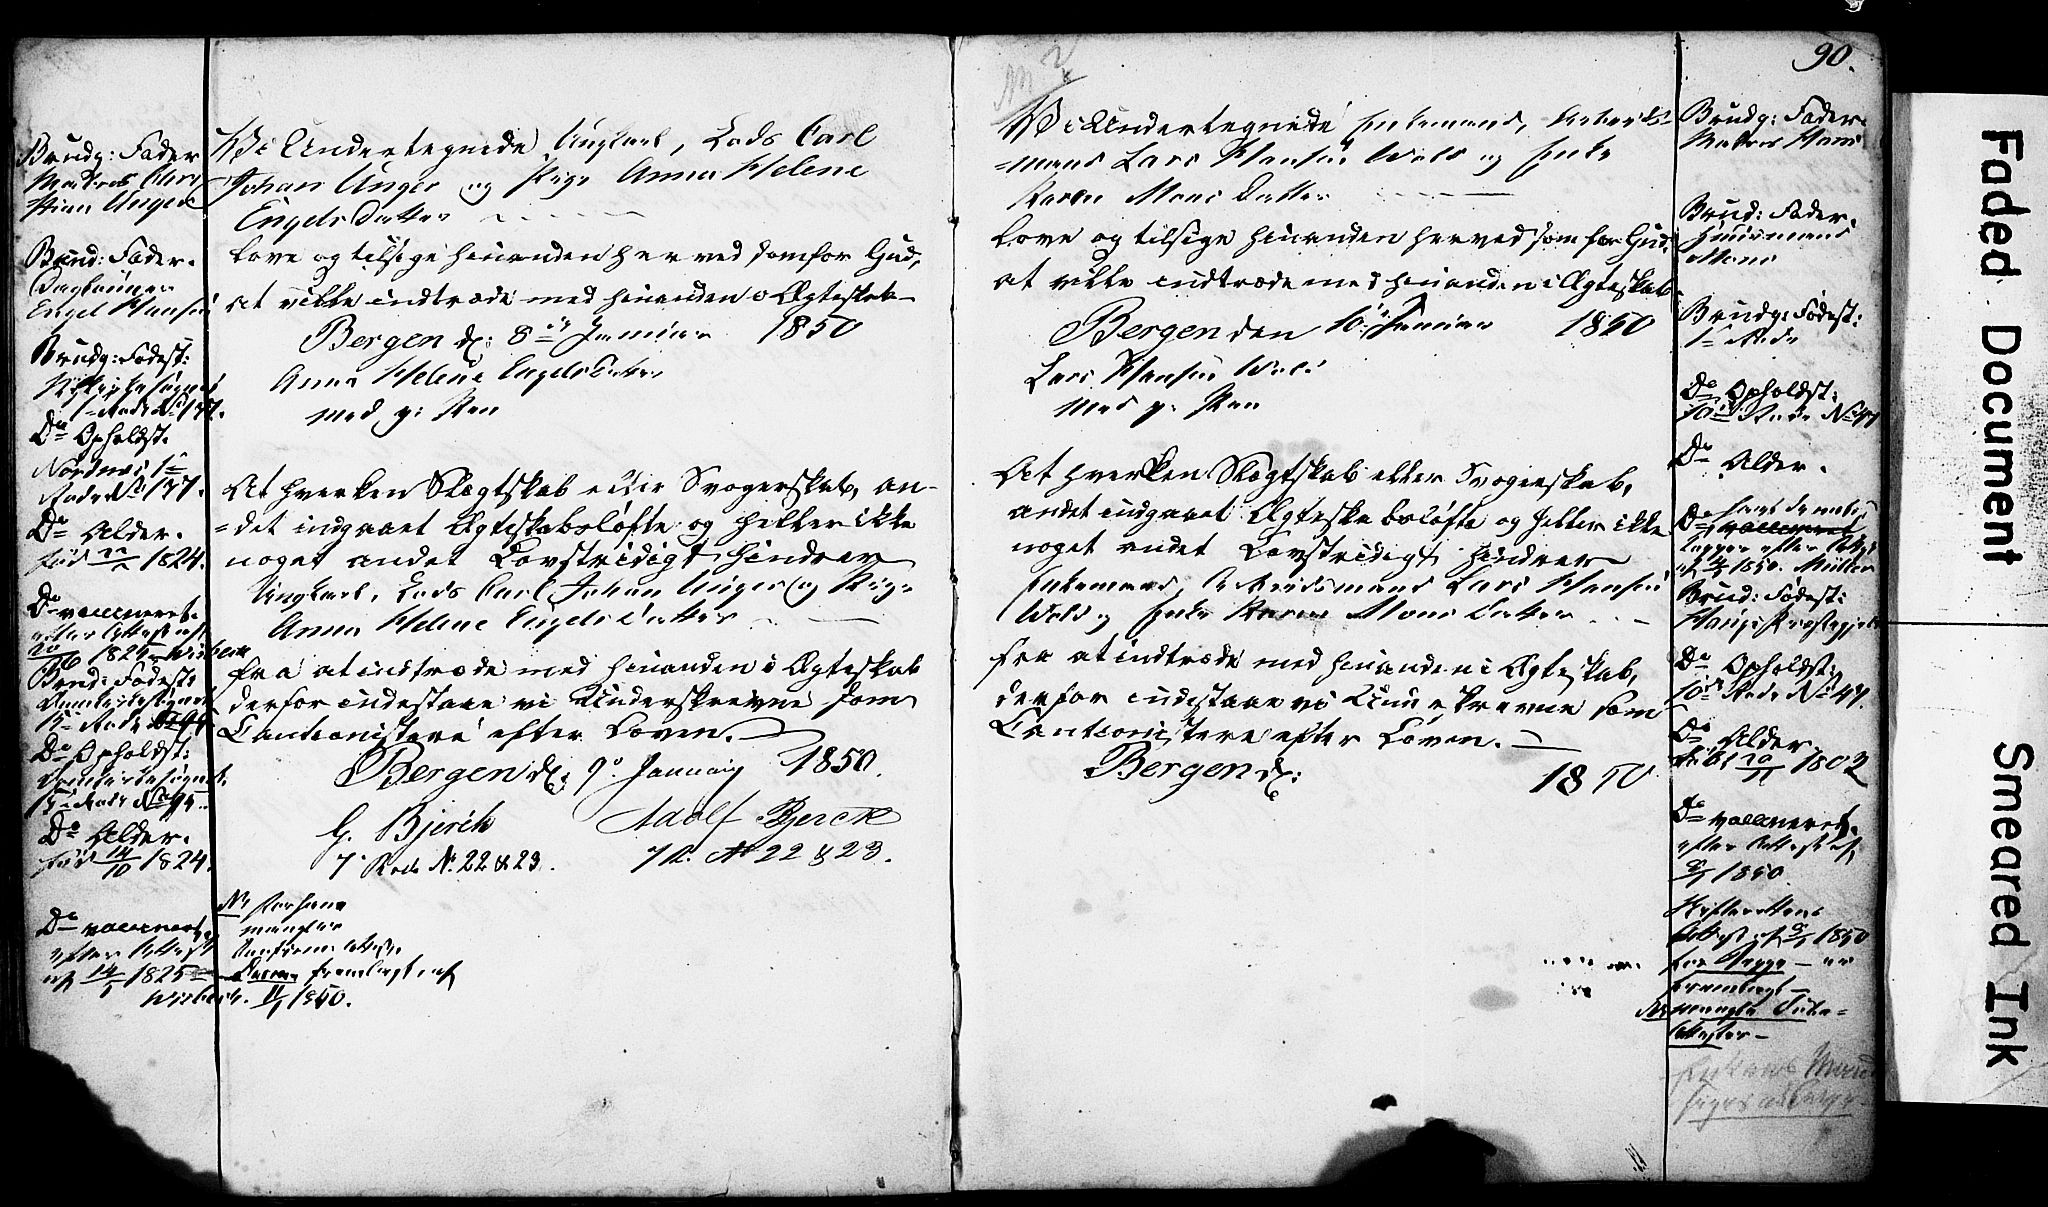 Brudg: Fader
Matros Chri
stian Unger
Brud: Fader.
Engel Hansen
Brudg: Fødest:
Nykirkesognet
1ste Rode No 177.
Do Opholdst.
Nordnæs 1ste
Rode No 177.
Do Alder.
født 1824.
Do vaccineret
efter Attest af
1825 Wisbech
Brud: Fødest:
Domkirkesognet
15de Rode No 95
Do Opholdst:
Domkirkesognet
15de Rode No 95.
Do Alder.
født 14/10 1824.
Do vaccineret
efter Attest
af 14/1 1825
Wisbech.
Vi Undertegnede Ungkarl, Lods Carl
Johan Unger og Pige Anna Helene
Engels Datter
love og tilsige hinanden herved som for Gud,
at ville indtræde med hinanden i Ægteskab
Bergen d: 8de Januar 1850
Anna Helene Engelsdatter
med p: Pen
At hverken Slægtskab eller Svogerskab, an-
=det indgaaet Ægteskabsløfte og heller ikke
noget andet Lovstridigt hindrer
Ungkarl, Lods Carl Johan Unger og Pige
Anna Helene Engels Datter
fra at indtræde med hinanden i Ægteskab
derfor indestaae vi Underskrevne som
Cautionister efter Loven.
Bergen d: 9de Januar 1850.
G. Bjerck Adolf Bjerck
7de Rode No. 22 & 23. 7 R. No 22 & 23.
mangler
Confirm. Attest.
fremlagt af
11/1 1850.
90.
No 2
Vi Undertegnede Enkemand, Arbeids-
=mand Lars Hansen Wold og Enke
Karen Mons Datter
love og tilsige hinanden herved som for Gud,
at ville indtræde med hinanden i Ægteskab.
Bergen den 10de Januar 1850
Lars Hansen Wold
med p. Pen
At hverken Slægtskab eller Svogerskab,
andet indgaaet Ægteskabsløfte og heller ikke
noget andet Lovstridigt hindrer
Enkemand, Arbeidsmand Lars Hansen
Wold og Enke Karen Mons Datter
fra at indtræde med hinanden i Ægteskab,
derfor indestaae vi Underskrevne som
Cautionistere efter Loven.
Bergen d: 1850
Brudg: Fader.
Matros Hans
Brud: Fader.
Huusmand
Mons
Brudg: Fødest:
1ste Rode
Do Opholdst:
10de Rode No 47
Do Alder.
Do vaccineret
efter Attest
1850. Müller
Brud: Fødest:
Hougs Præstegjeld
Do Opholdst:
10de Rode No 47.
Do Alder.
1802
Do vaccineret.
efter Attest af
1850.
Skifterettens
Attest af 1850
for Begge er
fremlagt
mangler
Attester
Faded Document
Smeared Ink